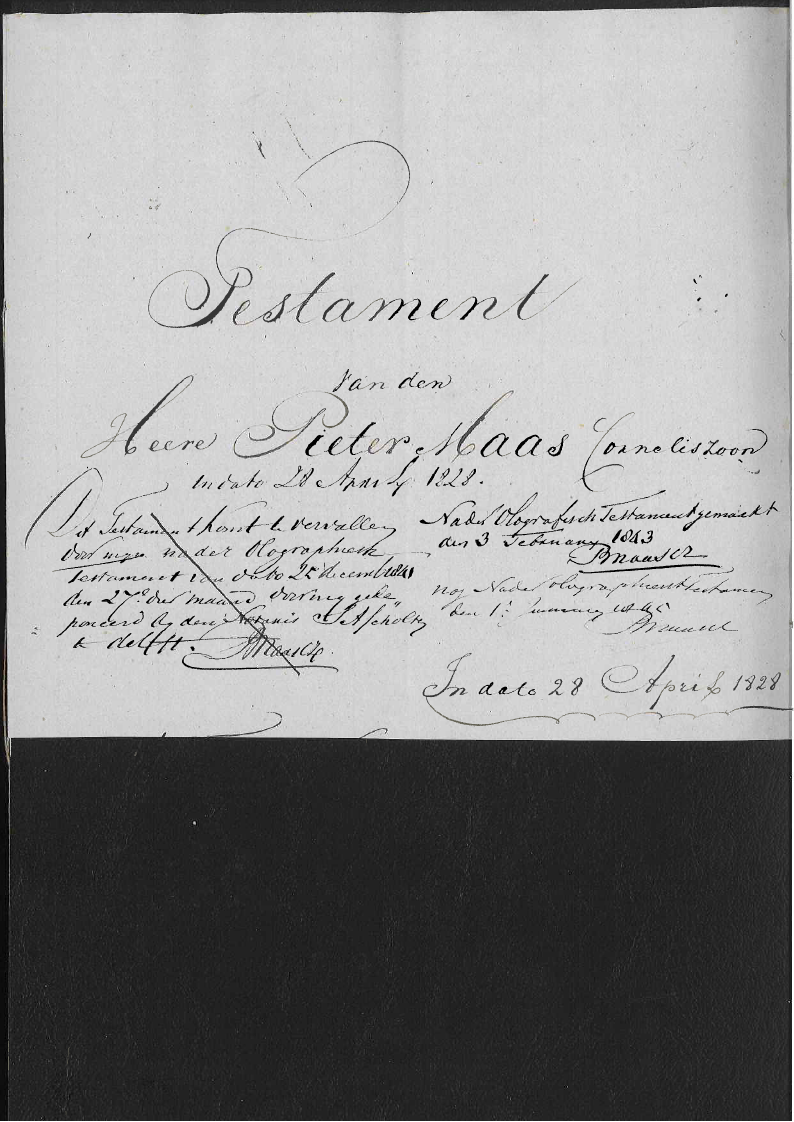 Testament
Van den
Heere Pieter Maas Corneliszoon
In dato 28 April 1828.
Dit Testament komt te vervallen
door mijn nader Olographisch
Testament van dato 25 december 1841
den 27e der maand door mij gede
poneerd bij den Notaris Scholtz
te delfft. PMaasCz
Nader Olografisch Testament gemaakt
den 3 February 1843
PMaasCz
nog Nader olographisch Testament
den 1e
PMaasCz
In dato 28 April 1828